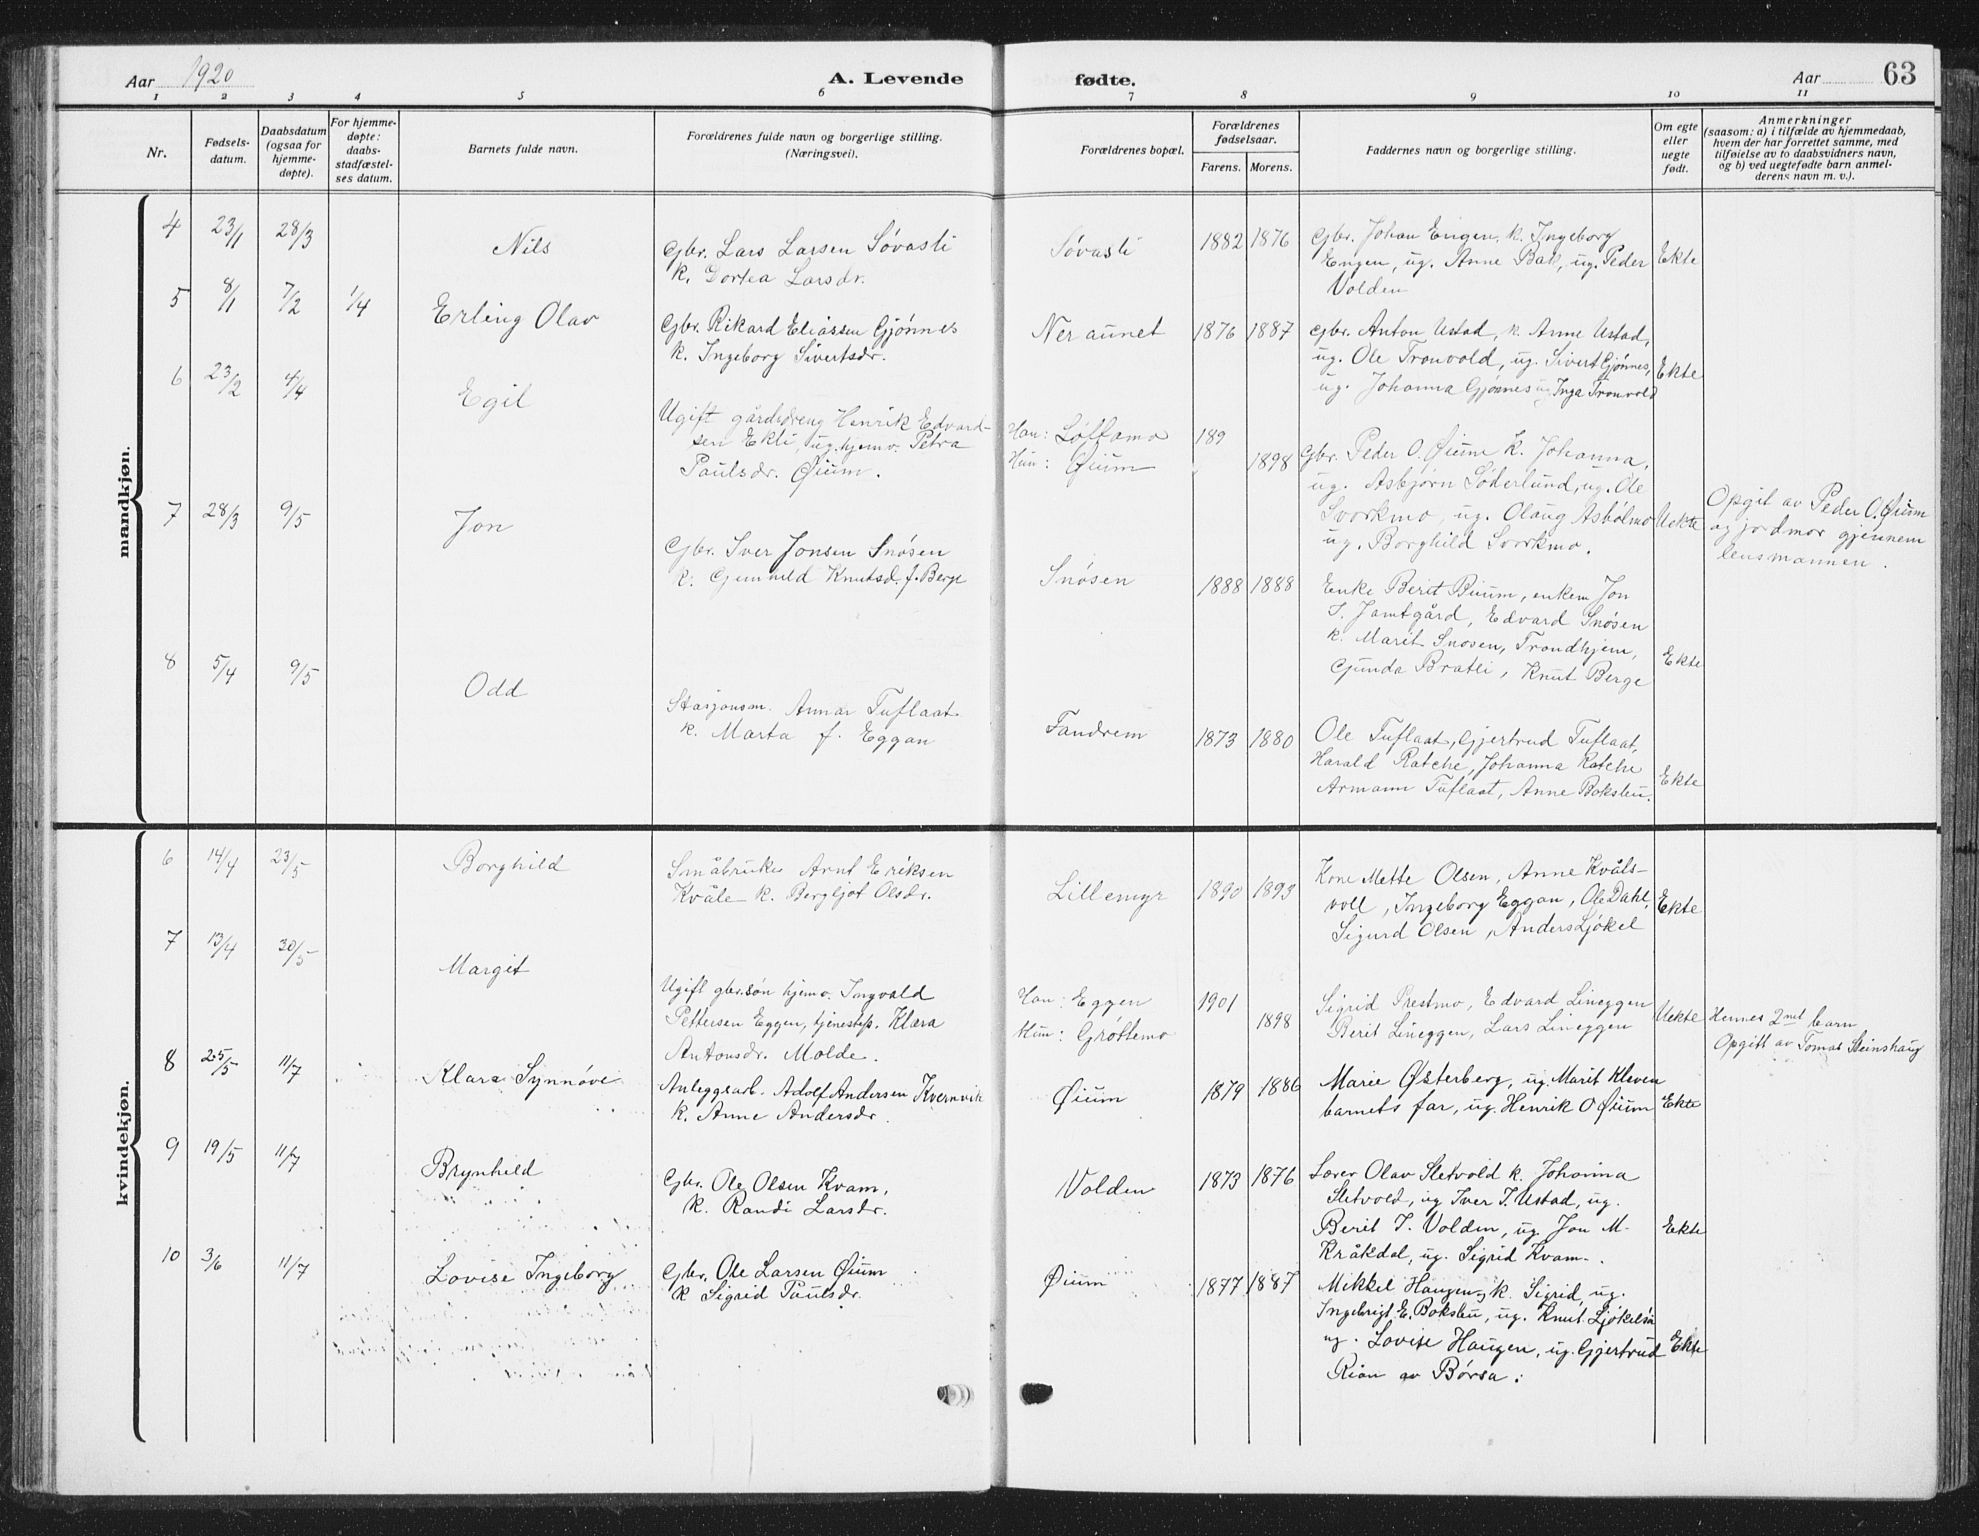 Aar 1920
A. Levende fødte.
Aar 63
1 2 3 4 5 6 7 8 9 10 11
Nr.
Fødsels-
datum.
Daabsdatum
(ogsaa for
hjemme-
døpte).
For hjemme-
døpte:
daabs-
stadfæstel-
ses datum.
Barnets fulde navn.
Forældrenes fulde navn og borgerlige stilling.
(Næringsvei).
Forældrenes bopæl.
Forældrenes
fødselsaar.
Farens. Morens.
Faddernes navn og borgerlige stilling.
Om egte
eller
uegte
født.
Anmerkninger
(saasom: a) i tilfælde av hjemmedaab,
hvem der har forrettet samme, med
tilføielse av to daabsvidners navn,
og b) ved uegtefødte barn anmel-
derens navn m. v.).
mandkjøn.
4 23/1 28/3 Nils
Gbr. Lars Larsen Søvasli
k. Dortea Larsdr.
Søvasli 1882 1876
Gbr. Johan Engen, k. Ingeborg
Engen, ug. Anne Bak, ug. Peder
Volden
Ekte
5 8/1 7/2 1/4 Erling Olav
Gbr. Rikard Eliassen Gjønnes
k. Ingeborg Sivertsdr.
Ner aunet 1876 1887
Gbr. Anton Ustad, k. Anne Ustad,
ug. Ole Tronvold, ug. Sivert Gjønnes,
ug. Johanna Gjønnes ug Inga Tronvold
Ekte
6 23/2 4/4 Egil
Ugift gårdsdreng Henrik Edvard-
sen Ekli, ug. hjemv. Petra
Paulsdr. Øium.
Han: Løftamo 189
Hun: Øium 1898
Gbr. Peder O. Øium k. Johanna,
ug. Asbjørn Søderlund, ug. Ole
Svorkmo, ug. Olaug Asbølmo
ug. Borghild Svorkmo.
Uekte
Opgit av Peder O. Øium
og jordmor gjennem
lensmannen.
7 28/3 9/5 Jon
Gbr. Iver Jonsen Snøsen
k. Gunhild Knutsd. f. Berge
Snøsen 1888 1888
Enke Berit Bium, enkem Jon
I. Jamtgård, Edvard Snøsen
k. Marit Snosen, Trondhjem,
Gjunda Bratli, Knut Berge
Ekte
8 5/4 9/5 Odd
Stasjonsm. Annar Tuflaat
k. Marta f. Eggan
Fandrem 1873 1880
Ole Tuflaat, Gjertrud Tuflaat,
Harald Ratche, Johanna Ratche
Armann Tuflaat, Anne Boksleu.
Ekte
kvindekjøn.
6 14/4 23/5 Borghild
Småbruker Arnt Eriksen
Kvåle k. Bergljot Olsdr.
Lillemyr 1890 1893
Kone Mette Olsen, Anne Kvåls-
voll, Ingeborg Eggan, Ole Dahl,
Sigurd Olsen, Anders Ljøkel
Ekte
7 13/4 30/5 Margit
Ugift gbr.søn hjemv. Ingvald
Pettersen Eggen, tjenestep. Klara
Antonsdr. Molde.
Han: Eggen 1901
Hun: Grøttemo 1898
Sigrid Prestmo, Edvard Lineggen
Berit Lineggen, Lars Lineggen
Uekte
Hennes 2net barn
Opgitt av Tomas Steinshaug
8 25/5 11/7 Klara Synnøve
Anleggsarb. Adolf Andersen Kvernvik
k. Anne Andersdr.
Øium 1879 1886
Marie Østerberg, ug. Marit Kleven
barnets far, ug. Henrik O Øium
Ekte
9 19/5 11/7 Brynhild
Gbr. Ole Olsen Kvam,
k. Randi Larsdr.
Volden 1873 1876
Lærer Olav Sletvold k. Johanna
Sletvold, ug Iver I. Ustad, ug.
Berit I. Volden, ug. Jon M.
Kråkdal, ug. Sigrid Kvam.
Ekte
10 3/6 11/7 Lovise Ingeborg
Gbr. Ole Larsen Øium
k Sigrid Paulsdr.
Øium 1877 1887
Mikkel Haugen, k. Sigrid, ug.
Ingebrigt E. Boksleu, ug. Knut Ljøkelsøi
ug. Lovise Haugen, ug. Gjertrud
Rian av Børsa.
Ekte